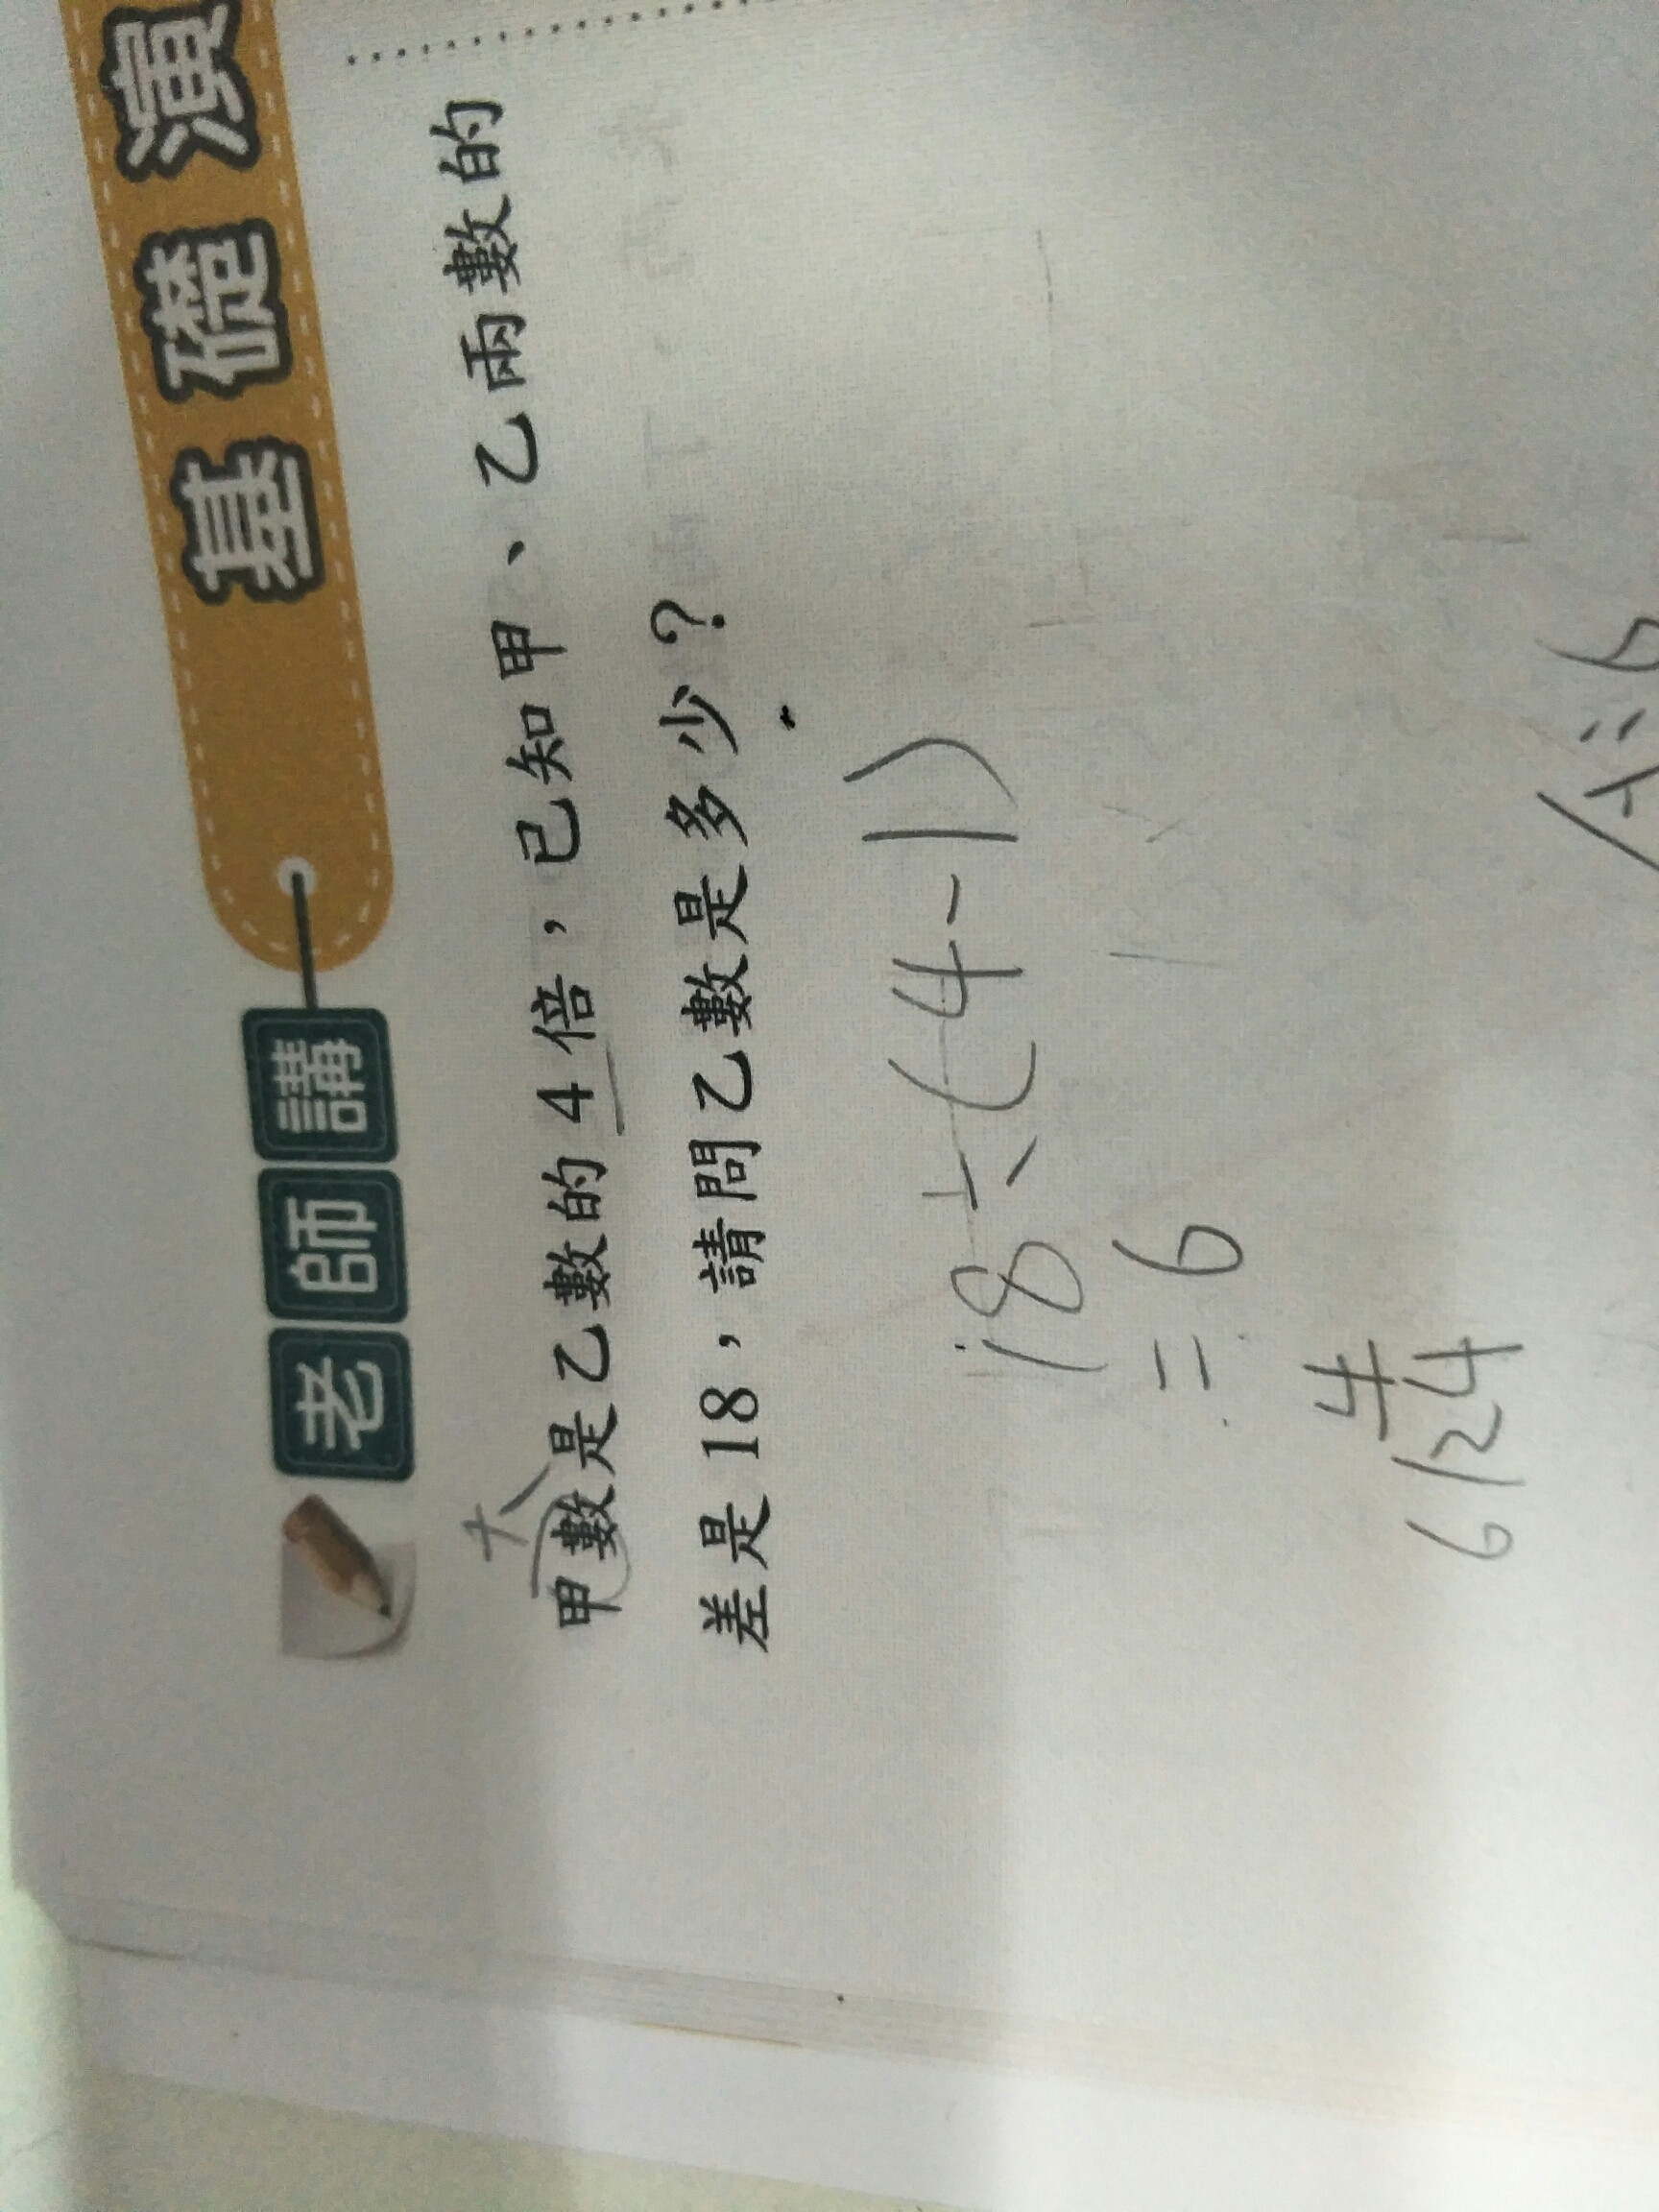 老師講
基礎演
大
甲數是乙數的4倍，已知甲、乙兩數的
差是18，請問乙數是多少？
18÷(4-1)
=6
4
6/24
A:6